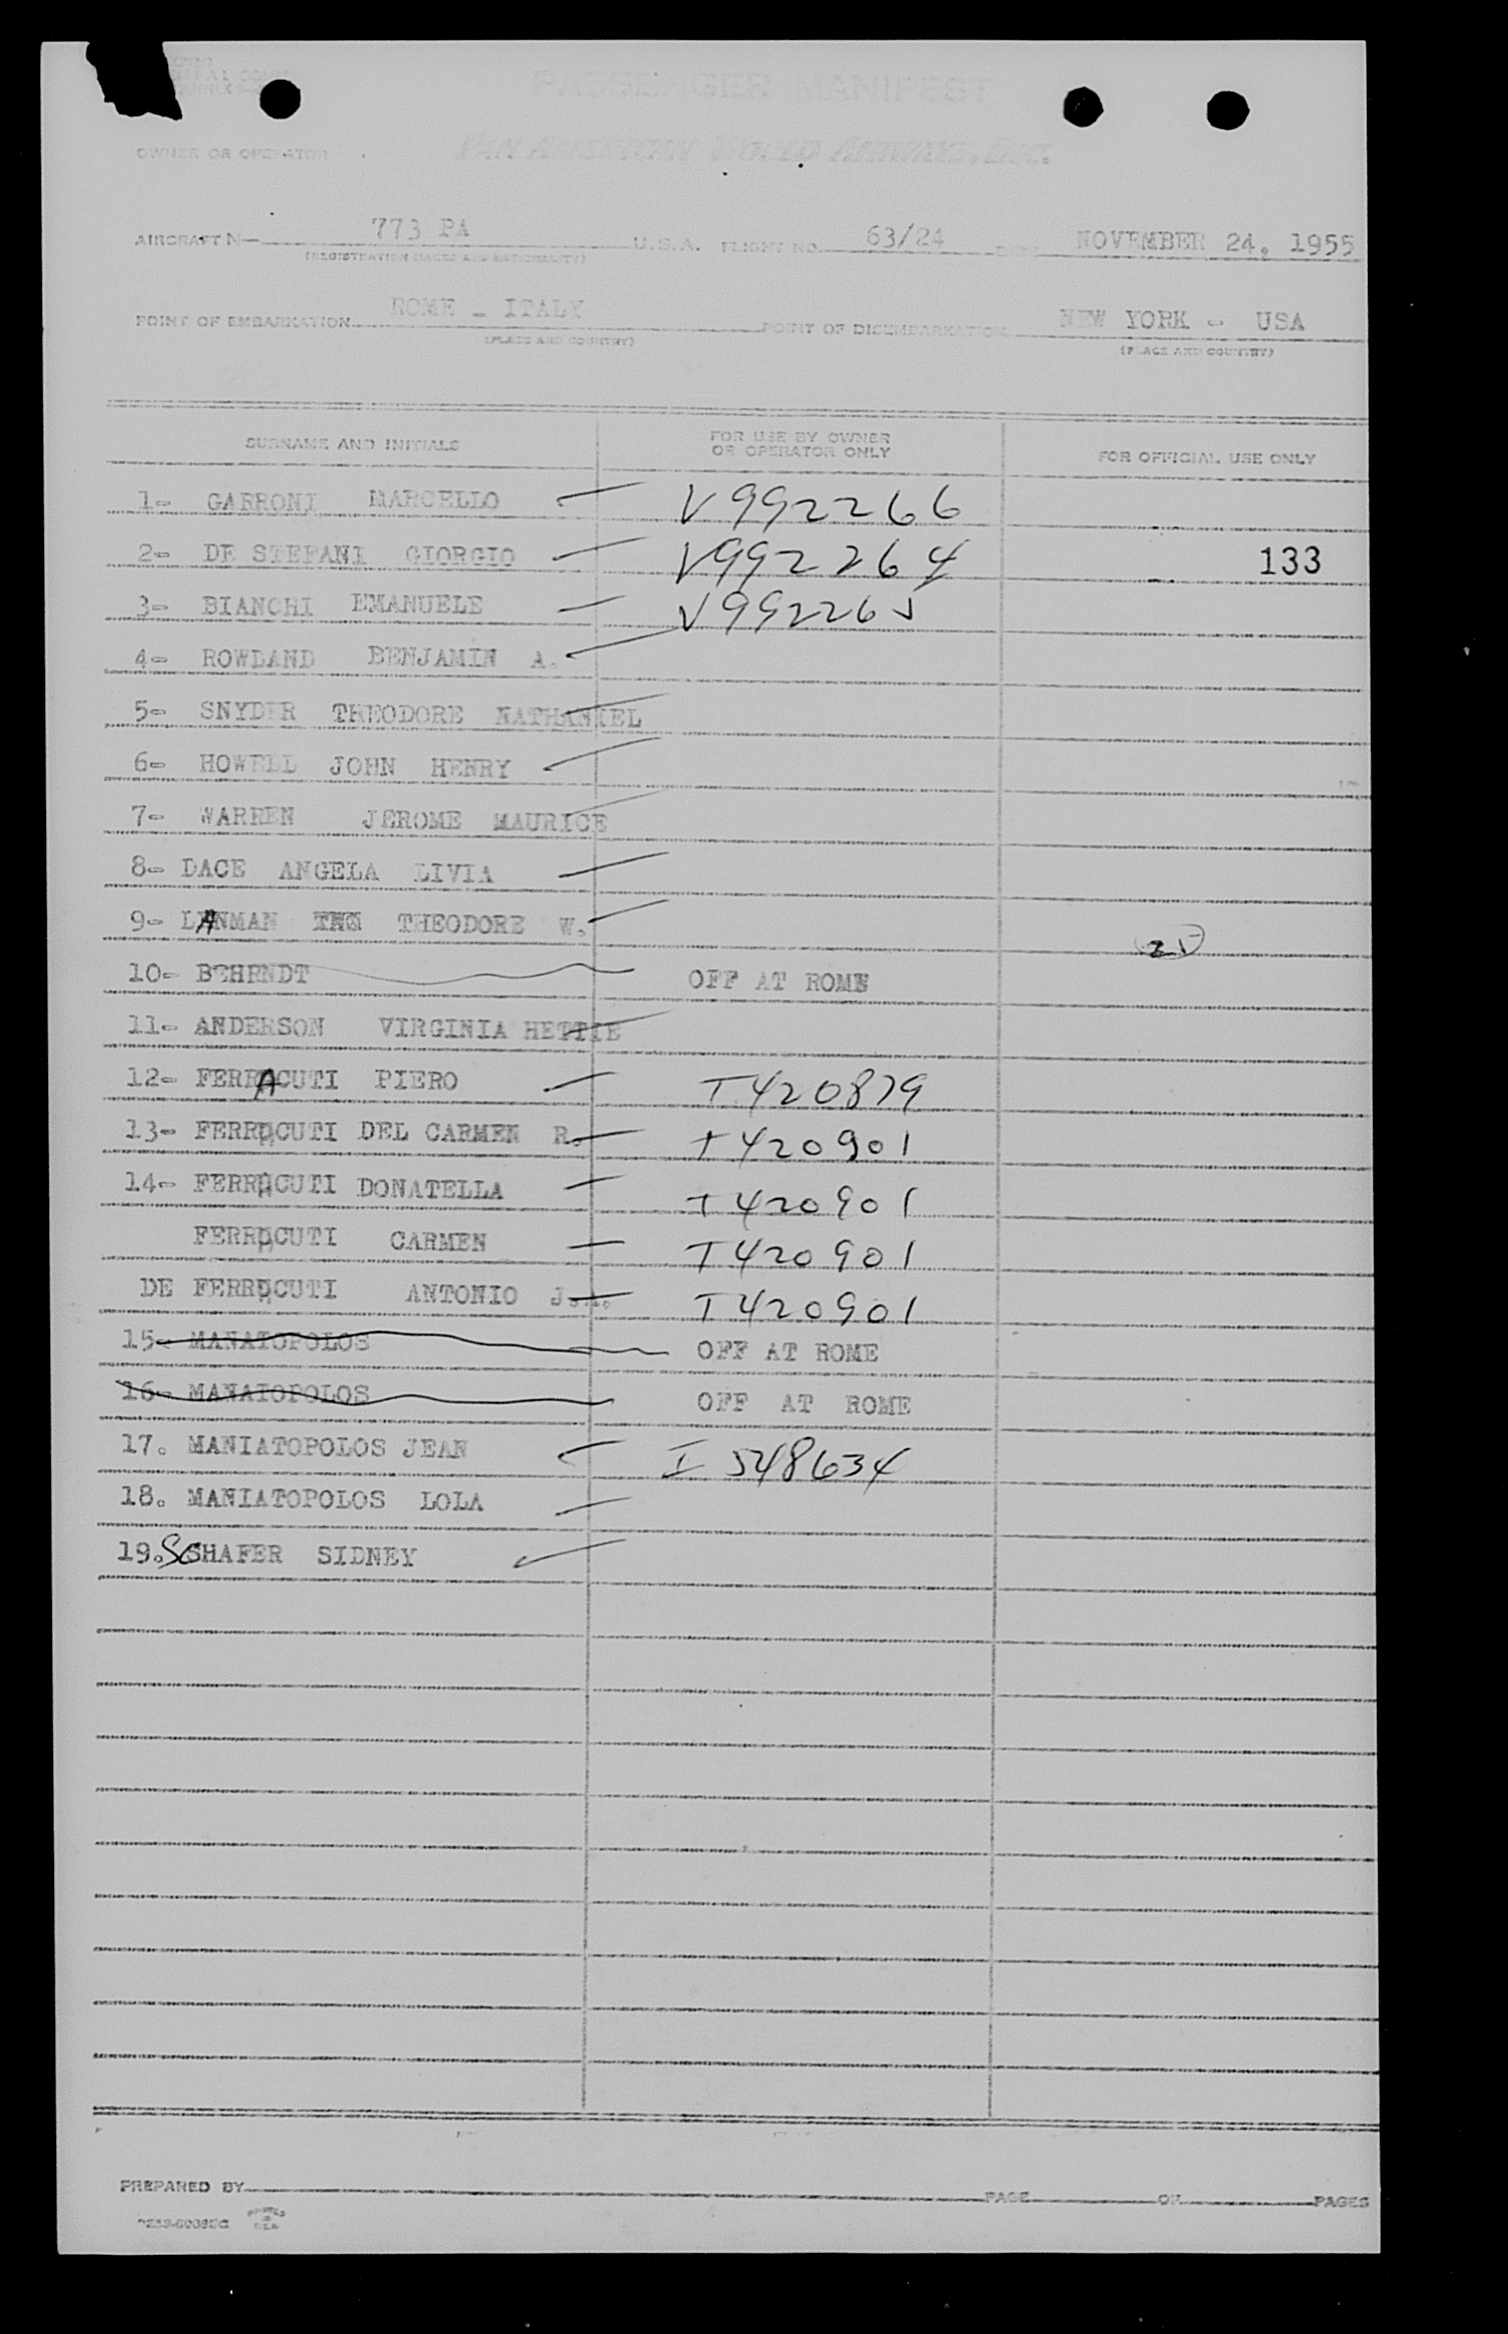 PASSENGER MANIFEST
OWNER OR OPERATOR PAN AMERICAN WORLD AIRWAYS, INC.
AIRCRAFT N— 773 PA U.S.A. FLIGHT NO. 63/24 DATE NOVEMBER 24, 1955
(REGISTRATION MARKS AND NATIONALITY)
POINT OF EMBARKATION ROME - ITALY POINT OF DISEMBARKATION NEW YORK - USA
(PLACE AND COUNTRY) (PLACE AND COUNTRY)
SURNAME AND INITIALS FOR USE BY OWNER OR OPERATOR ONLY FOR OFFICIAL USE ONLY
1- GARRONI MARCELLO V992266
2- DE STEFANI GIORGIO V992264 133
3- BIANCHI EMANUELE V992265
4- ROWLAND BENJAMIN A.
5- SNYDER THEODORE NATHANIEL
6- HOWELL JOHN HENRY
7- WARREN JEROME MAURICE
8- DACE ANGELA LIVIA
9- LANMAN THEODORE W.
21
10- BEHRNDT OFF AT ROME
11- ANDERSON VIRGINIA HETTIE
12- FERRACUTI PIERO T420879
13- FERRACUTI DEL CARMEN R. T420901
14- FERRACUTI DONATELLA T420901
FERRACUTI CARMEN T420901
DE FERRACUTI ANTONIO J.A. T420901
15- MANATOPOLOS OFF AT ROME
16- MANATOPOLOS OFF AT ROME
17. MANIATOPOLOS JEAN I 548634
18. MANIATOPOLOS LOLA
19. SCHAFER SIDNEY
PREPARED BY PAGE OF PAGES
PRINTED IN U.S.A.